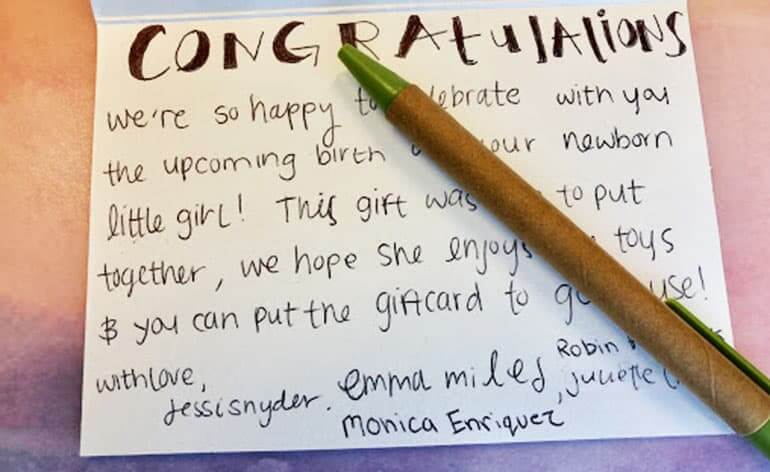 CONGRAtulAlioNs
we're so happy to lebrate with you
the upcoming birth our newborn
little girl! This gift was to put
together, we hope she enjoys toys
& you can put the giftcard to use!
with love,
Robin
Jessi snyder. emma miles, juliette
Monica Enriquez